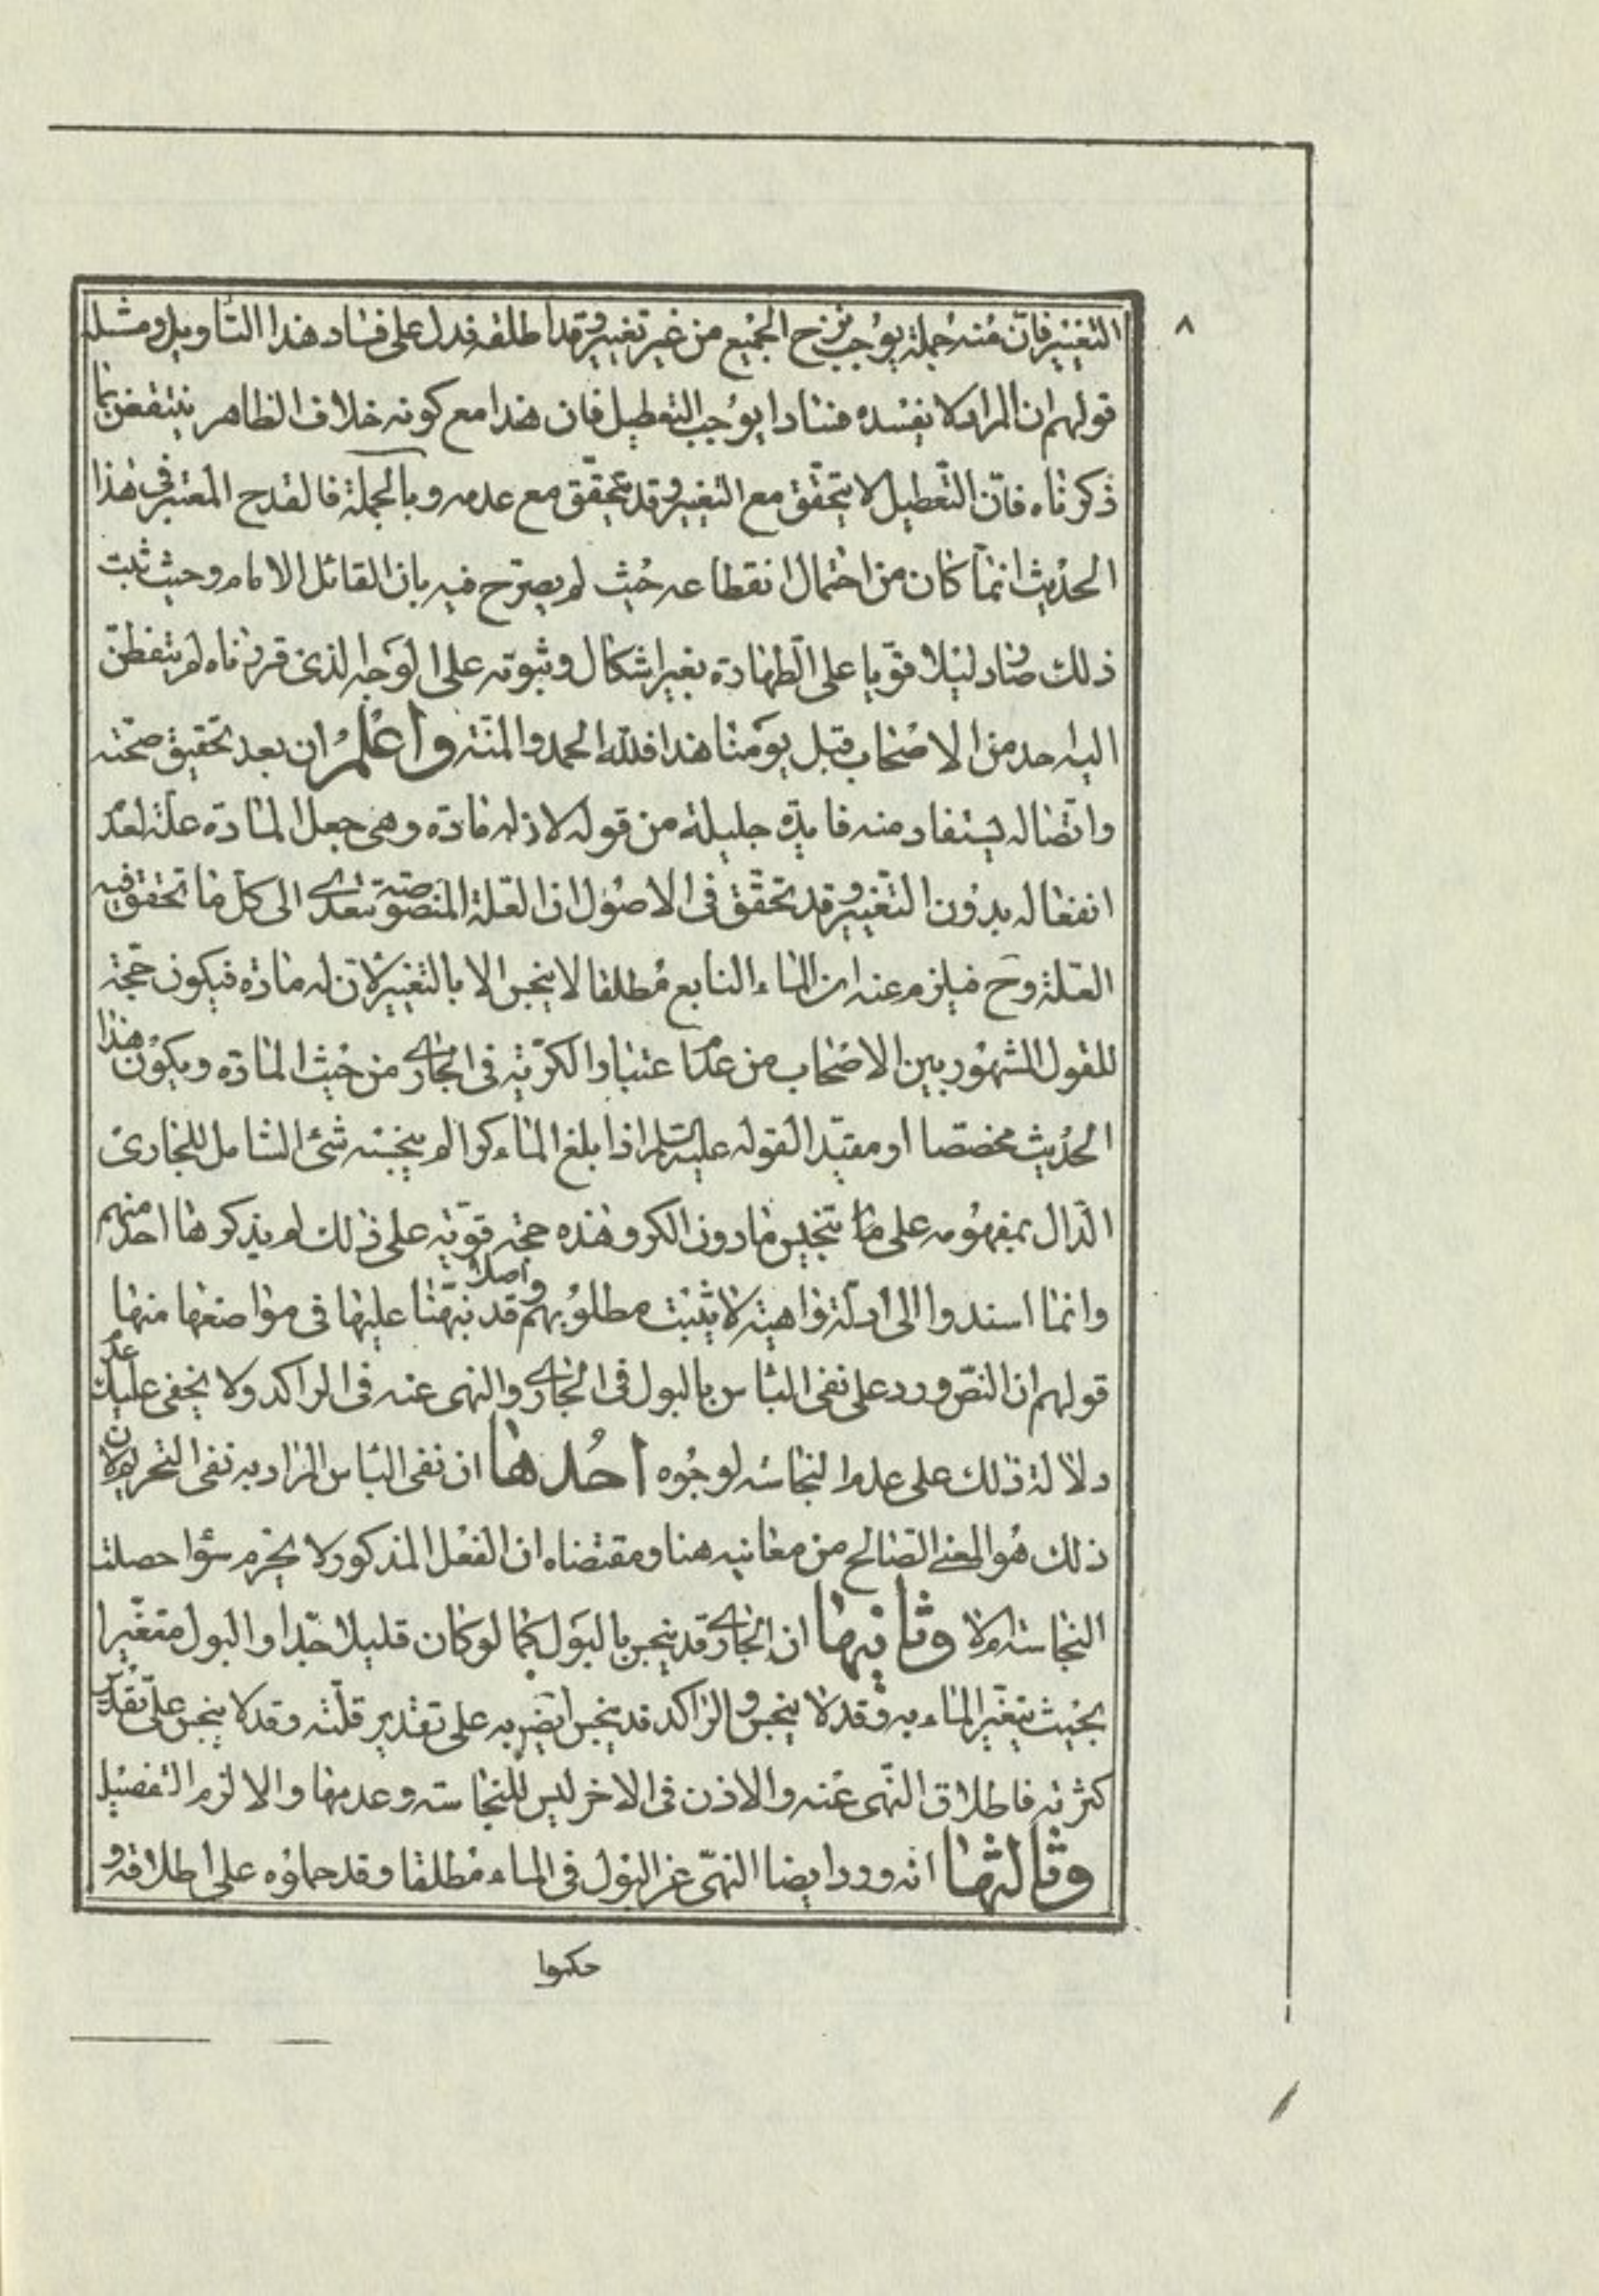 ٨
التغيير فان منه جملة يوجب نزح الجميع من غير تغيير وقد اطلقه فدل على فساد هذا التأويل ومثله
قولهم ان المراد لا يفسده فسادا يوجب التعطيل فان هذا مع كونه خلاف الظاهر ينتقض بما
ذكرناه فانّ التعطيل لا يتحقّق مع التغيير وقد يتحقّق مع عدمه وبالجملة فالقدح المعتبر فى هذا
الحديث انما كان من احتمال انقطاعه حيث لم يصرّح فيه بان القائل الامام وحيث ثبت
ذلك صار دليلا قويا على الطهارة بغير اشكال وثبوته على الوجه الذى قررناه لم يتفطن
اليه احد من الاصحاب قبل يومنا هذا فلله الحمد والمنة واعلم ان بعد تحقيق صحته
واتصاله يستفاد منه فايدة جليلة من قوله لان له مادة وهى جعل المادة علة لعدم
انفعاله بدون التغيير وقد تحقّق فى الاصول ان العلة المنصوصة تتعدى الى كل ما تحقق فيه
العلة وح فيلزم عنه ان الماء النابع مطلقا لا ينجس الا بالتغيير لان له مادة فيكون حجة
للقول المشهور بين الاصحاب من عدم اعتبار الكرّية فى الجارى من حيث المادة ويكون هذا
الحديث مخصصا او مقيدا لقوله عليه السلم اذا بلغ الماء كرا لم ينجسه شئ الشامل للجارى
الدال بمفهومه على ما تنجيس ما دون الكر وهذه حجة قوية على ذلك لم يذكرها احد منهم
وانما اسندوا الى ادلة واهية لا يثبت مطلوبهم اصلا وقد نبهنا عليها فى مواضعها منها
قولهم ان النص ورد على نفى الباس بالبول فى الجارى والنهى عنه فى الراكد ولا يخفى عليك عدم
دلالة ذلك على عدم النجاسة لوجوه احدها ان نفى الباس المراد به نفى التحريم لان
ذلك هو المعنى الصالح من معانيه هنا ومقتضاه ان الفعل المذكور لا يحرم سواء حصلت
النجاسة ام لا وثانيها ان الجارى قد ينجس بالبول كما لو كان قليلا جدا والبول متغيرا
بحيث يتغير الماء به وقد لا ينجس والراكد قد ينجس ايضا به على تقدير قلته وقد لا ينجس على تقدير
كثرته فاطلاق النهى عنه والاذن فى الاخر ليس للنجاسة وعدمها والا لزم التفصيل
وثالثها انه ورد ايضا النهى عن البول فى الماء مطلقا وقد حملوه على اطلاقه و
حكموا